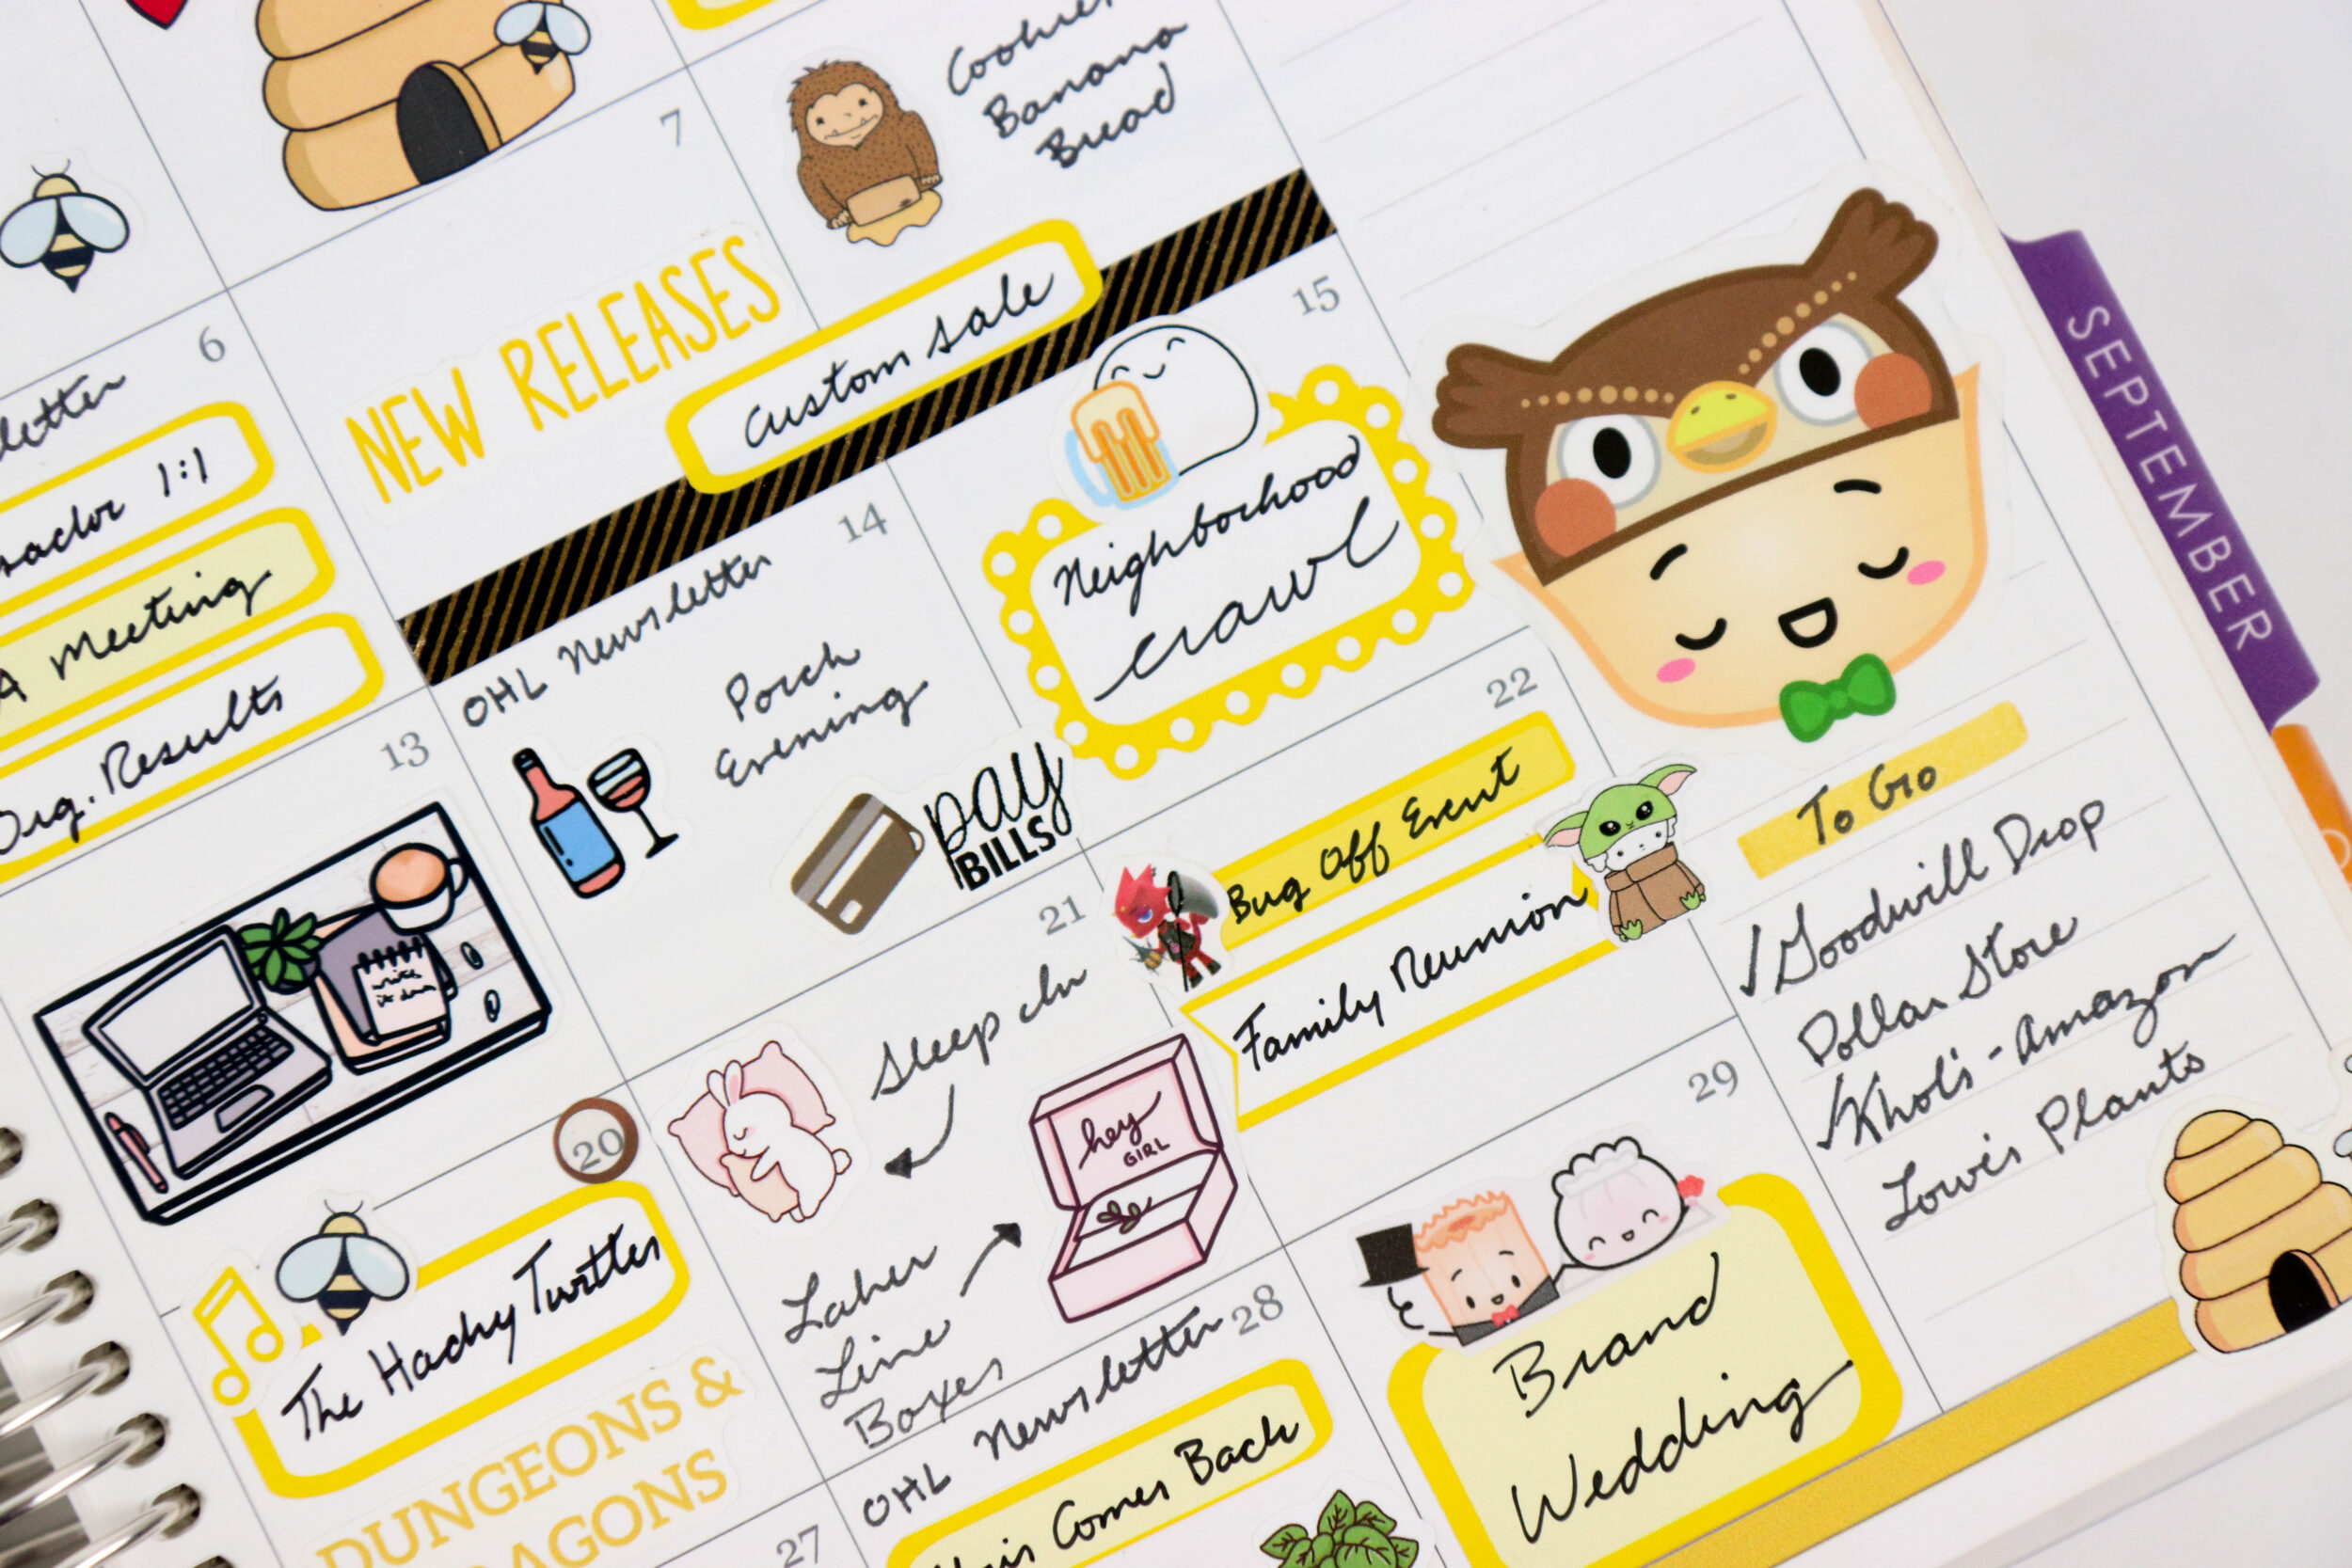 Cookies
Banana
Bread
7
NEW RELEASES
custom sale
6
1:1
Meeting
Org. Results
14
OHL Newsletter
Porch
Evening
15
Neighborhood
crawl
SEPTEMBER
13
write
it down
pay
BILLS
21
Sleep In
hey
GIRL
Laher
Line
Boxes
22
Bug Off Event
Family Reunion
To Go
√Goodwill Drop
Dollar Store
√Khol's - Amazon
Lowe's Plants
20
The Hachy Turtles
DUNGEONS &
27
28
OHL Newsletter
Comes Back
29
Brand
Wedding